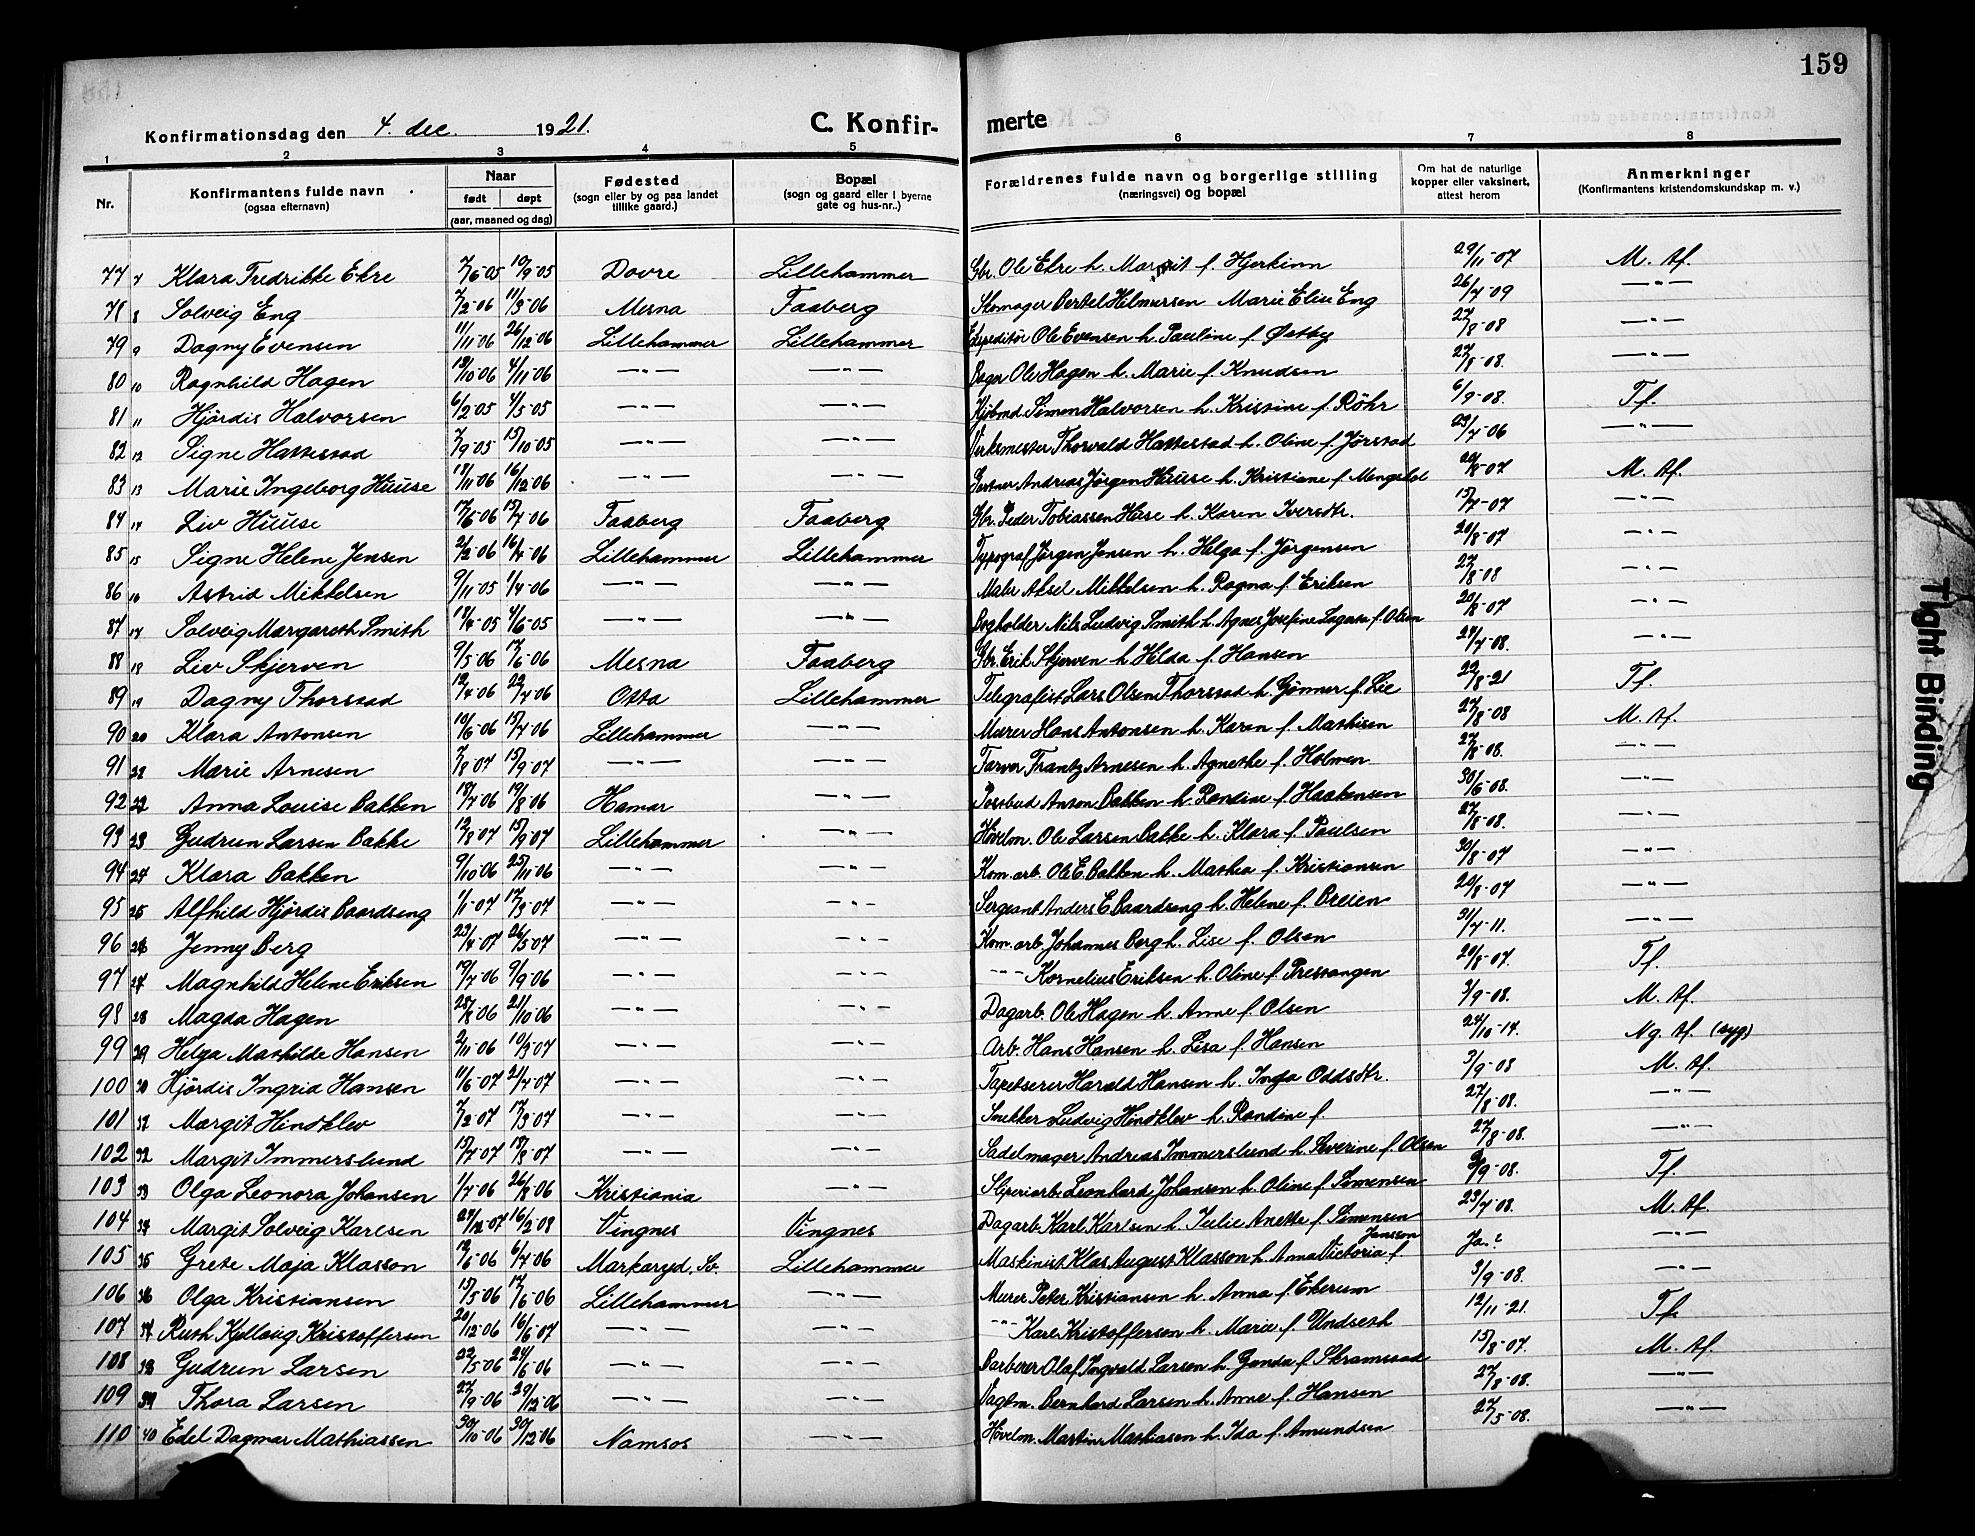 159
Konfirmationsdag den 4. dec. 1921. C. Konfir- merte
1 2 3 4 5 6 7 8
Nr. Konfirmantens fulde navn (ogsaa efternavn) Naar født døpt (aar, maaned og dag) Fødested (sogn eller by og paa landet tillike gaard.) Bopæl (sogn og gaard eller i byerne gate og hus-nr.) Forældrenes fulde navn og borgerlige stilling (næringsvei) og bopæl Om hat de naturlige kopper eller vaksinert, attest herom Anmerkninger (Konfirmantens kristendomskundskap m. v.)
77 7 Klara Fredrikke Ekre 7/6-05 10/9-05 Dovre Lillehammer Gbr. Ole Ekre h. Margit f. Hjerkinn 29/11-07 M. tf.
78 8 Solveig Eng 7/2-06 11/3-06 Mesna Faaberg Skomager Bertel Hilmarsen Marie Elise Eng 26/7-09 —"—
79 9 Dagny Evensen 11/11-06 26/12-06 Lillehammer Lillehammer Expeditør Ole Evensen h. Pauline f. Østby 27/8-08 —"—
80 10 Ragnhild Hagen 13/10-06 4/11-06 —"— —"— Bager Ole Hagen h. Marie f. Knudsen 27/8-08. —"—
81 11 Hjördis Halvorsen 6/2-05 4/5-05 —"— —"— Kjöbmd. Simen Halvorsen h. Kristine f. Röhr 6/9-08. Tf.
82 12 Signe Hattestad 7/9-05 15/10-05 —"— —"— Verksmester Thorvald Hattestad h. Oline f. Jørstad 23/7-06 —"—
83 13 Marie Ingeborg Huuse 18/11-06 16/12-06 —"— —"— Gartner Andreas Jørgen Huuse h. Kristiane f. Mengshol 20/8-07 M. tf.
84 14 Liv Huuse 17/6-06 15/7-06 Faaberg Faaberg Gbr. Peder Tobiassen Huse h. Karen Iversdtr. 15/7-07 —"—
85 15 Signe Helene Jensen 2/2-06 16/4-06 Lillehammer Lillehammer Typograf Jørgen Jensen h. Helga f. Jörgensen 20/8-07 —"—
86 16 Astrid Mikkelsen 9/11-05 1/4-06 —"— —"— Maler Aksel Mikkelsen h. Ragna f. Eriksen 27/8-08 —"—
87 17 Solveig Margareth Smith 18/4-05 4/6-05 —"— —"— Bogholder Nils Ludvig Smith h. Agnes Josefine Lagasta f. Olsen 20/8-07 —"—
88 18 Liv Skjerven 9/5-06 17/6-06 Mesna Faaberg Gbr. Erik Skjerven h. Hilda f. Hansen 24/7-08. —"—
89 19 Dagny Thorstad 12/4-06 22/4-06 Otta Lillehammer Telegrafist Lars Olsen Thorstad h. Gunner f. Lie 22/8-21 Tf.
90 20 Klara Antonsen 10/6-06 15/7-06 Lillehammer —"— Murer Hans Antonsen h. Karen f. Mathisen 27/8-08 M. tf.
91 Marie Arnesen 7/8-07 15/9-07 —"— —"— Farver Frantz Arnesen h. Agnethe f. Holmen 27/8-08. —"—
92 22 Anna Louise Bakken 18/7-06 19/8-06 Hamar —"— Postbud Anton Bakken h. Randine f. Haakensen 30/6-08. —"—
93 23 Gudrun Larsen Bakke 12/8-07 15/9-07 Lillehammer —"— Høvelm. Ole Larsen Bakke h. Klara f. Paulsen 27/8-08. —"—
94 24 Klara Bakken 9/10-06 25/11-06 —"— —"— Kom. arb. Ole E. Bakken h. Mathea f. Kristiansen 30/8-07 —"—
95 25 Alfhild Hjördis Baardseng 1/1-07 17/3-07 —"— —"— Sergeant Anders E. Baardseng h. Helene f. Breien 20/8-07 —"—
96 26 Jenny Berg 23/4-07 26/5-07 —"— —"— Kom. arb. Johannes Berg h. Lise f. Olsen 31/7-11. —"—
97 27 Magnhild Helene Eriksen 19/7-06 9/9-06 —"— —"— —"— Kornelius Eriksen h. Oline f. Prestangen 20/8-07. Tf.
98 28 Magda Hagen 28/8-06 21/10-06 —"— —"— Dagarb. Ole Hagen h. Anne f. Olsen 3/9-08. M. tf.
99 29 Helga Mathilde Hansen 2/11-06 10/3-07 —"— —"— Arb. Hans Hansen h. Lisa f. Hansen 24/10-14. Ng. tf. (syg)
100 30 Hjördis Ingrid Hansen 11/6-07 21/7-07 —"— —"— Tapetserer Harald Hansen h. Inga Oddsdtr. 3/9-08 M. tf.
101 Margit Hindklev 7/2-07 17/3-07 —"— —"— Snekker Ludvig Hindklev h. Randine f 27/8-08. —"—
102 32 Margit Immerslund 15/7-07 18/8-07 —"— —"— Sadelmager Andreas Immerslund h. Severine f. Olsen 27/8-08. —"—
103 33 Olga Leonora Johansen 1/7-06 26/8-06 Kristiania —"— Sliperiarb. Leonhard Johansen h. Oline f. Simensen 3/9-08. Tf.
104 34 Margit Solveig Karlsen 24/12-07 16/2-08 Vingnes Vingnes Dagarb. Karl Karlsen h. Julie Anette f. Simensen 23/7-08. M. tf.
105 35 Grete Maja Klasson 12/5-06 6/7-06 Markaryd. Sv. Lillehammer Maskinist Klas August Klasson h. Anna Victoria f. Jansson Ja.? —"—
106 36 Olga Kristiansen 15/5-06 17/6-06 Lillehammer —"— Murer Peter Kristiansen h. Anna f. Ekerum 3/9-08. —"—
107 37 Ruth Kjellaug Kristoffersen 20/12-06 16/6-07 —"— —"— —"— Karl Kristoffersen h. Marie f. Undseth 12/11-21. Tf.
108 38 Gudrun Larsen 22/5-06 24/6-06 —"— —"— Barberer Olaf Ingvald Larsen h. Gunda f. Skramstad 15/8-07. M. tf.
109 39 Thora Larsen 27/9-06 29/12-06 —"— —"— Vagtm. Bernhard Larsen h. Anne f. Hansen 27/8-08. —"—
110 40 Edel Dagmar Mathiassen 30/10-06 30/12-06 Namsos —"— Høvelm. Martin Mathiasen h. Ida f. Amundsen 27/5-08. —"—
Tight Binding